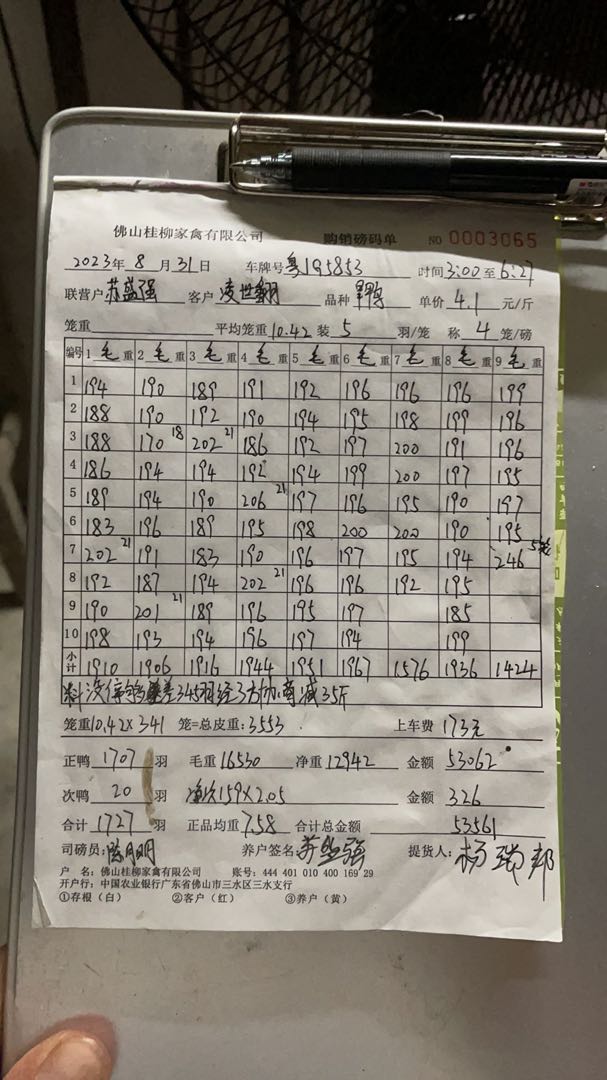 佛山桂柳家禽有限公司 购销磅码单 NO 0003065
2023年 8 月 31 日 车牌号 粤195853 时间 3:00 至 6:27
联营户 苏盛强 客户 凌世翻 品种 单价 4.1 元/斤
笼重 平均笼重 10.42 装 5 羽/笼 称 4 笼/磅
编号 1 毛 重 2 毛 重 3 毛 重 4 毛 重 5 毛 重 6 毛 重 7 毛 重 8 毛 重 9 毛 重
1 194 190 189 191 192 196 196 196 199
2 188 190 192 190 194 195 198 199 196
3 188 170 18 202 21 186 192 197 200 191 196
4 186 194 194 192 194 199 200 197 195
5 189 194 190 206 21 197 196 195 190 197
6 183 196 189 195 198 200 200 190 195
7 202 21 191 183 190 196 197 195 194 246 5笼
8 192 187 194 202 21 196 196 192 195
9 190 201 21 189 196 195 197 185
10 198 193 194 196 197 194 199
小计 1910 1906 1916 1944 1951 1967 1576 1936 1424
料没停 差345羽经3方协商减35斤
笼重 10.42×341 笼=总皮重: 3553 上车费 173元
正鸭 1707 羽 毛重 16530 净重 12942 金额 53062
次鸭 20 羽 159×2.05 金额 326
合计 1727 羽 正品均重 7.58 合计总金额 53561
司磅员: 养户签名: 苏盛强 提货人: 杨瑞邦
户 名: 佛山桂柳家禽有限公司 账号: 444 401 010 400 169 29
开户行: 中国农业银行广东省佛山市三水区三水支行
①存根（白） ②客户（红） ③养户（黄）